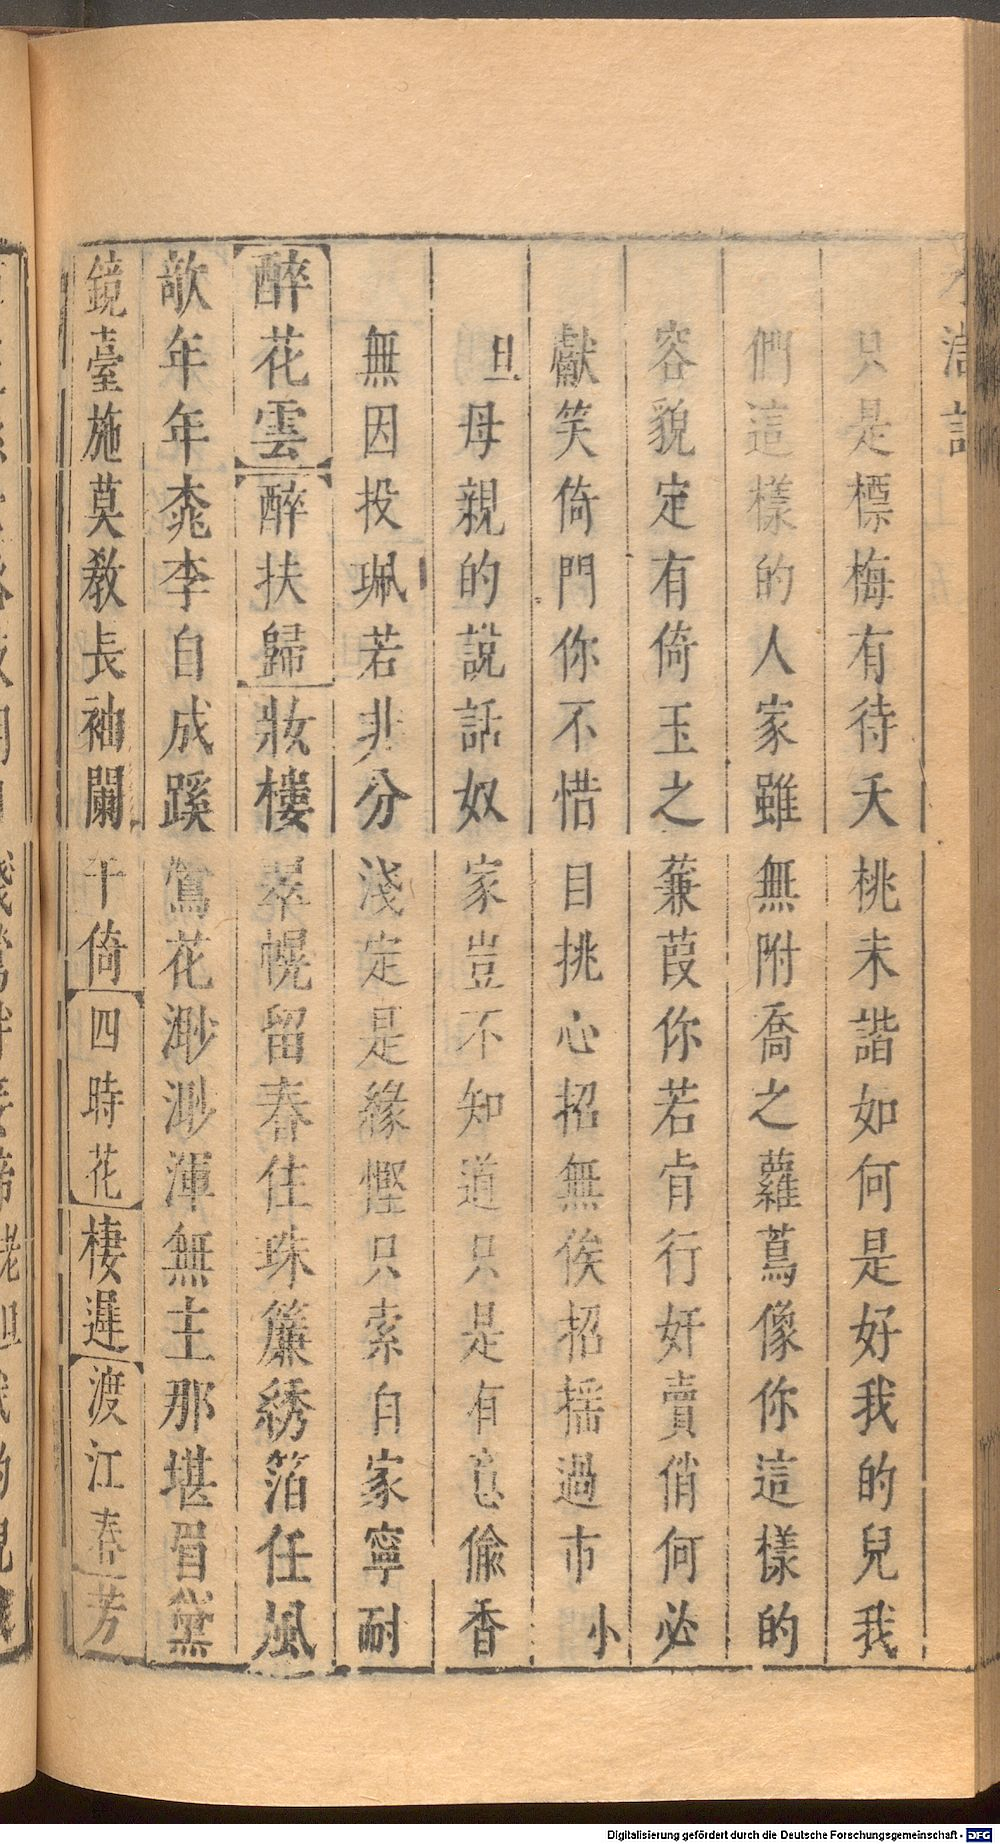 水滸記
只是標梅有待夭桃未諧如何是好我的兒我
們這樣的人家雖無附喬之蘿蔦像你這樣的
容貌定有倚玉之蒹葭你若肯行奸賣俏何必
獻笑倚門你不惜目挑心招無俟招搖過市小
旦母親的說話奴家豈不知道只是有意偷香
無因投珮若非分淺定是緣慳只索自家寧耐
醉花雲醉扶歸妝樓翠幌留春住珠簾綉箔任風
歊年年桃李自成蹊鶯花渺渺渾無主那堪眉黛
鏡臺施莫教長袖闌干倚四時花棲遲渡江春芳
Digitalisierung gefördert durch die Deutsche Forschungsgemeinschaft - DFG